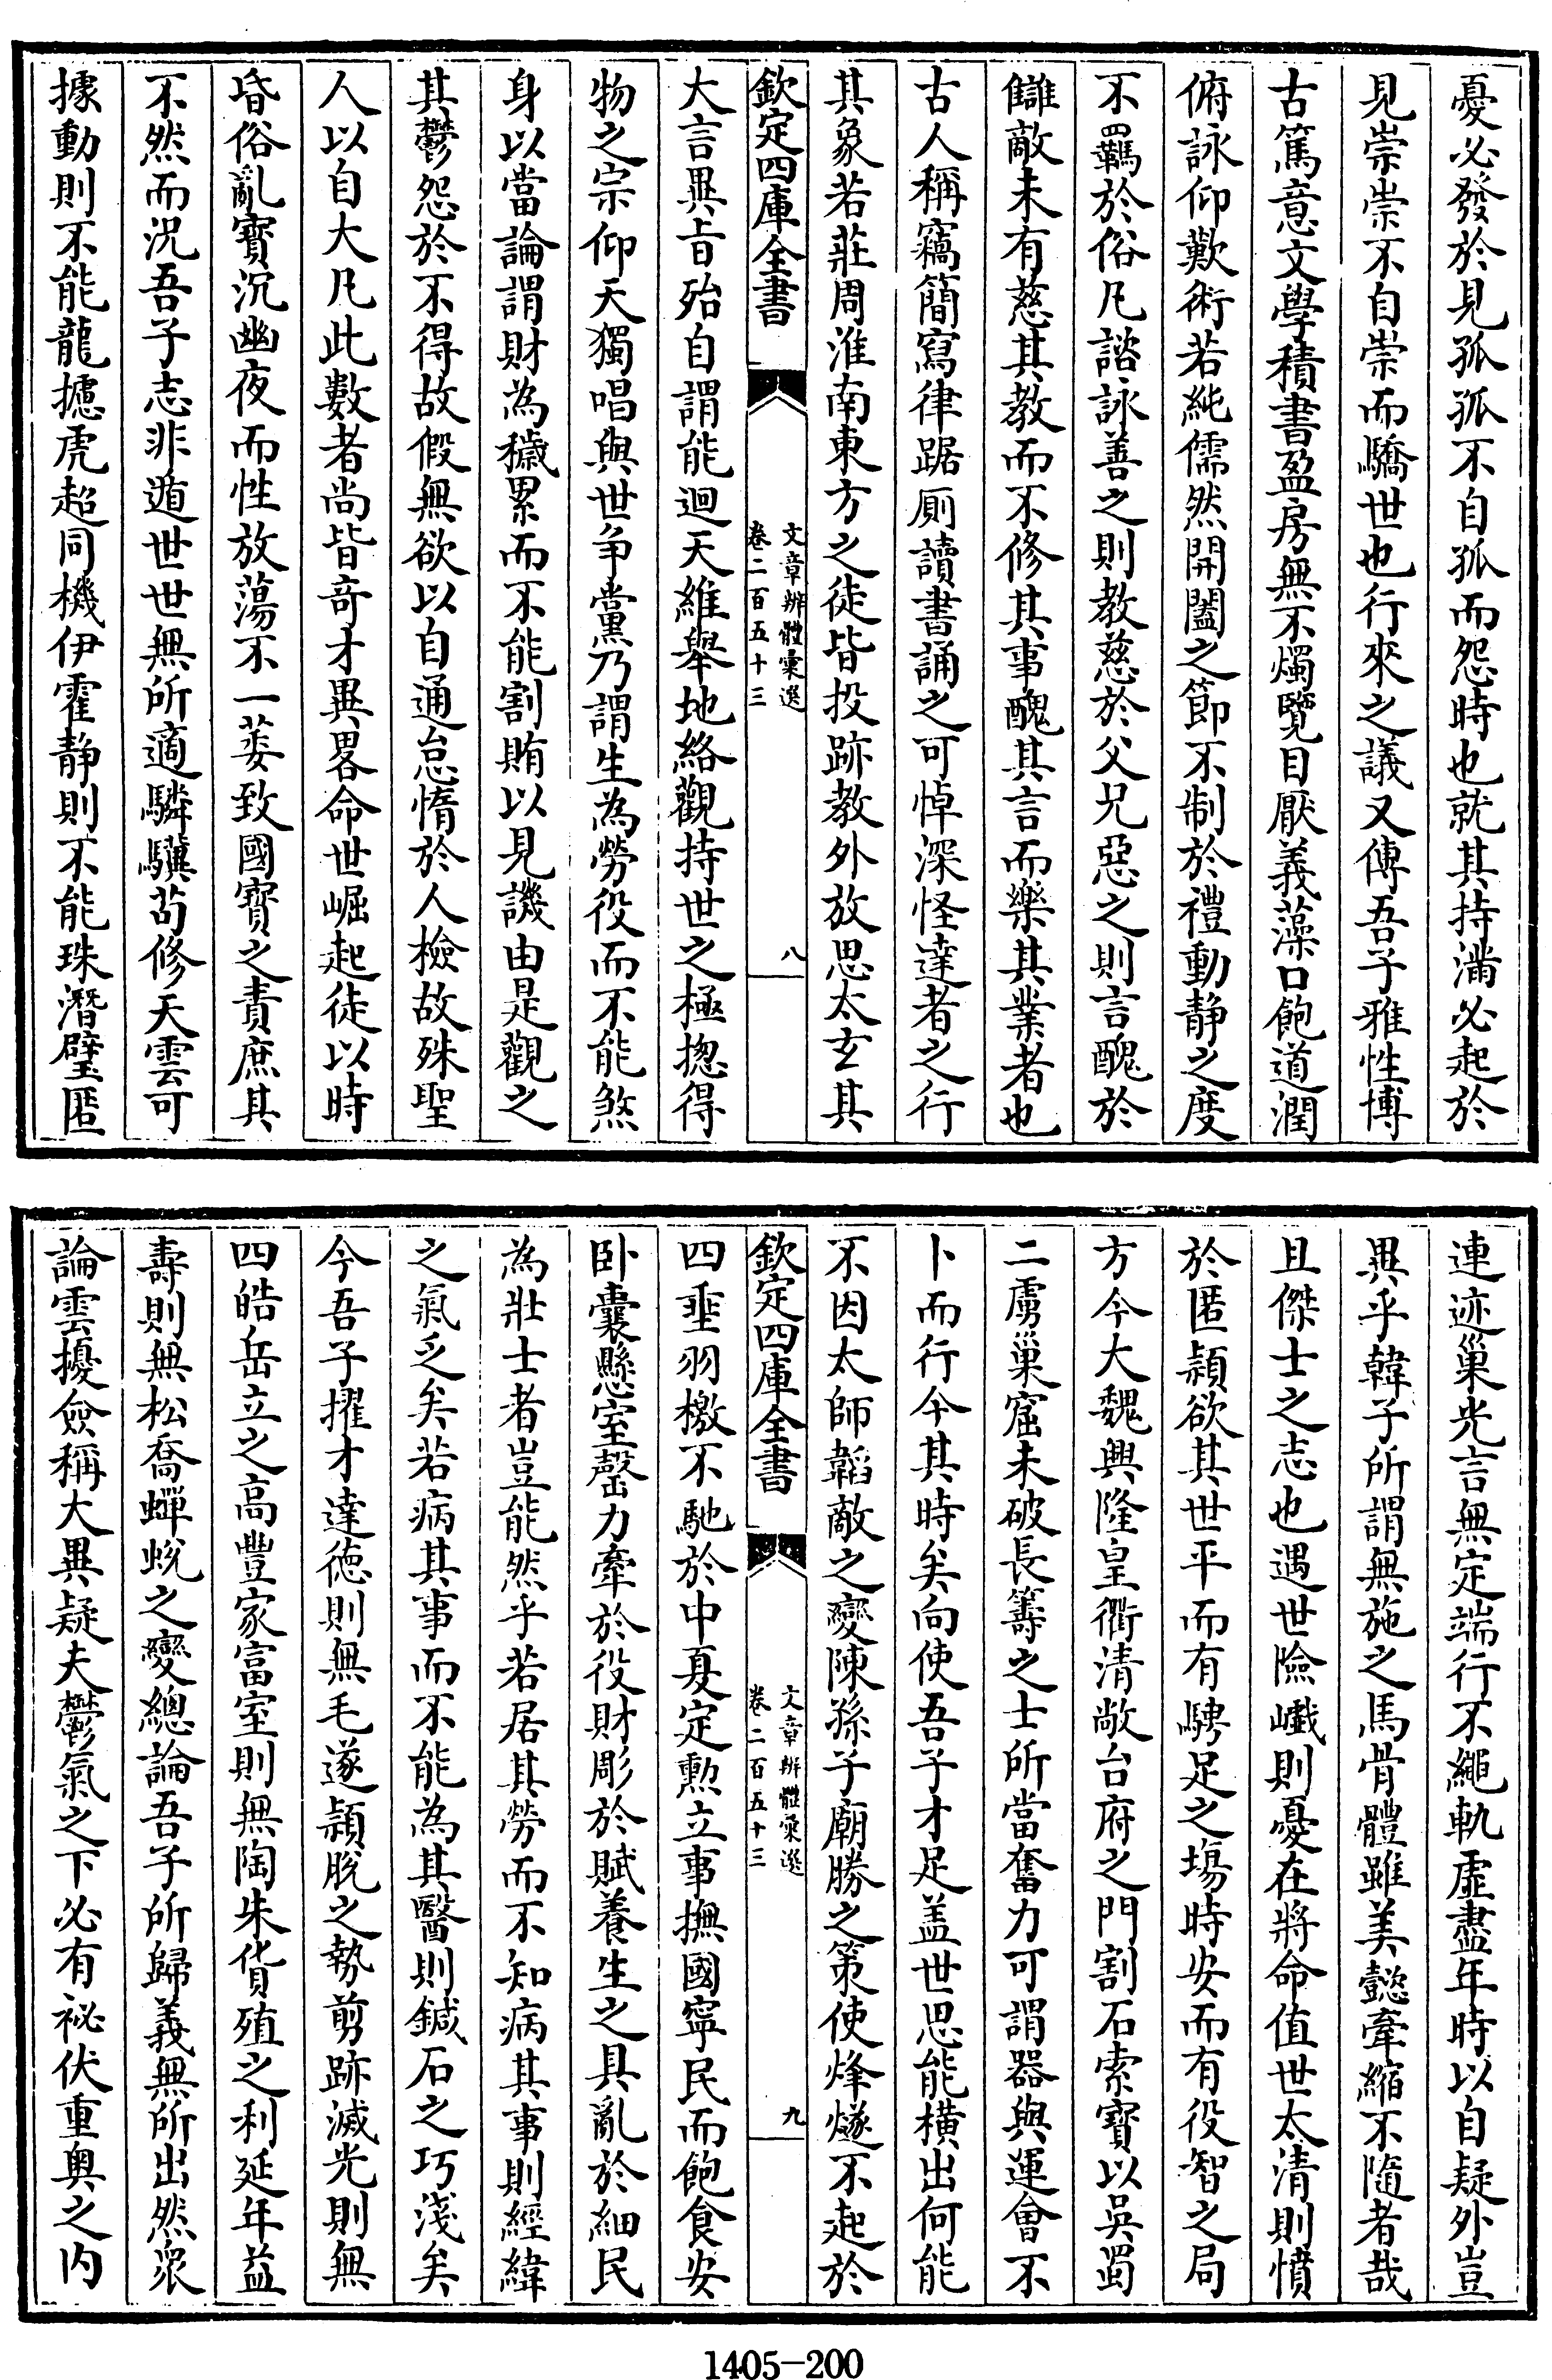 憂必發於見孤孤不自孤而怨時也就其持滿必起於
見崇崇不自崇而驕世也行來之議又傳吾子雅性博
古篤意文學積書盈房無不燭覽目厭義藻口飽道潤
俯詠仰歎術若純儒然開闔之節不制於禮動静之度
不羈於俗凡諮詠善之則教慈於父兄惡之則言醜於
讎敵未有慈其教而不修其事醜其言而樂其業者也
古人稱竊簡寫律踞厠讀書誦之可悼深怪達者之行
其象若莊周淮南東方之徒皆投跡教外放思太玄其
欽定四庫全書
文章辨體彙選
卷二百五十三
八
大言異旨殆自謂能迴天維舉地絡觀持世之極揔得
物之宗仰天獨唱與世争黨乃謂生為勞役而不能煞
身以當論謂財為穢累而不能割賄以見譏由是觀之
其鬱怨於不得故假無欲以自通怠惰於人檢故殊聖
人以自大凡此數者尚皆奇才異畧命世崛起徒以時
昏俗亂寳沉幽夜而性放蕩不一萎致國寳之責庶其
不然而況吾子志非遁世世無所適驎驥茍修天雲可
據動則不能龍攄虎超同機伊霍静則不能珠潛璧匿
連迹巢光言無定端行不繩軌虛盡年時以自疑外豈
異乎韓子所謂無施之馬骨體雖美懿牽縮不隨者哉
且傑士之志也遇世險巇則憂在將命值世太清則憤
於匿頴欲其世平而有騁足之塲時安而有役智之局
方今大魏興隆皇衢清敞台府之門割石索寳以吳蜀
二虜巢窟未破長籌之士所當奮力可謂器與運會不
卜而行今其時矣向使吾子才足盖世思能横出何能
不因太師韜敵之變陳孫子廟勝之策使烽燧不起於
欽定四庫全書
文章辨體彙選
卷二百五十三
九
四垂羽檄不馳於中夏定勲立事撫國寧民而飽食安
卧囊懸室罄力牽於役財彫於賦養生之具亂於細民
為壯士者豈能然乎若居其勞而不知病其事則經緯
之氣乏矣若病其事而不能為其醫則鍼石之巧淺矣
今吾子擢才達徳則無毛遂頴脱之勢剪跡滅光則無
四皓岳立之高豐家富室則無陶朱貨殖之利延年益
壽則無松喬蟬蛻之變總論吾子所歸義無所出然衆
論雲擾僉稱大異疑夫鬱氣之下必有祕伏重奥之内
1405-200